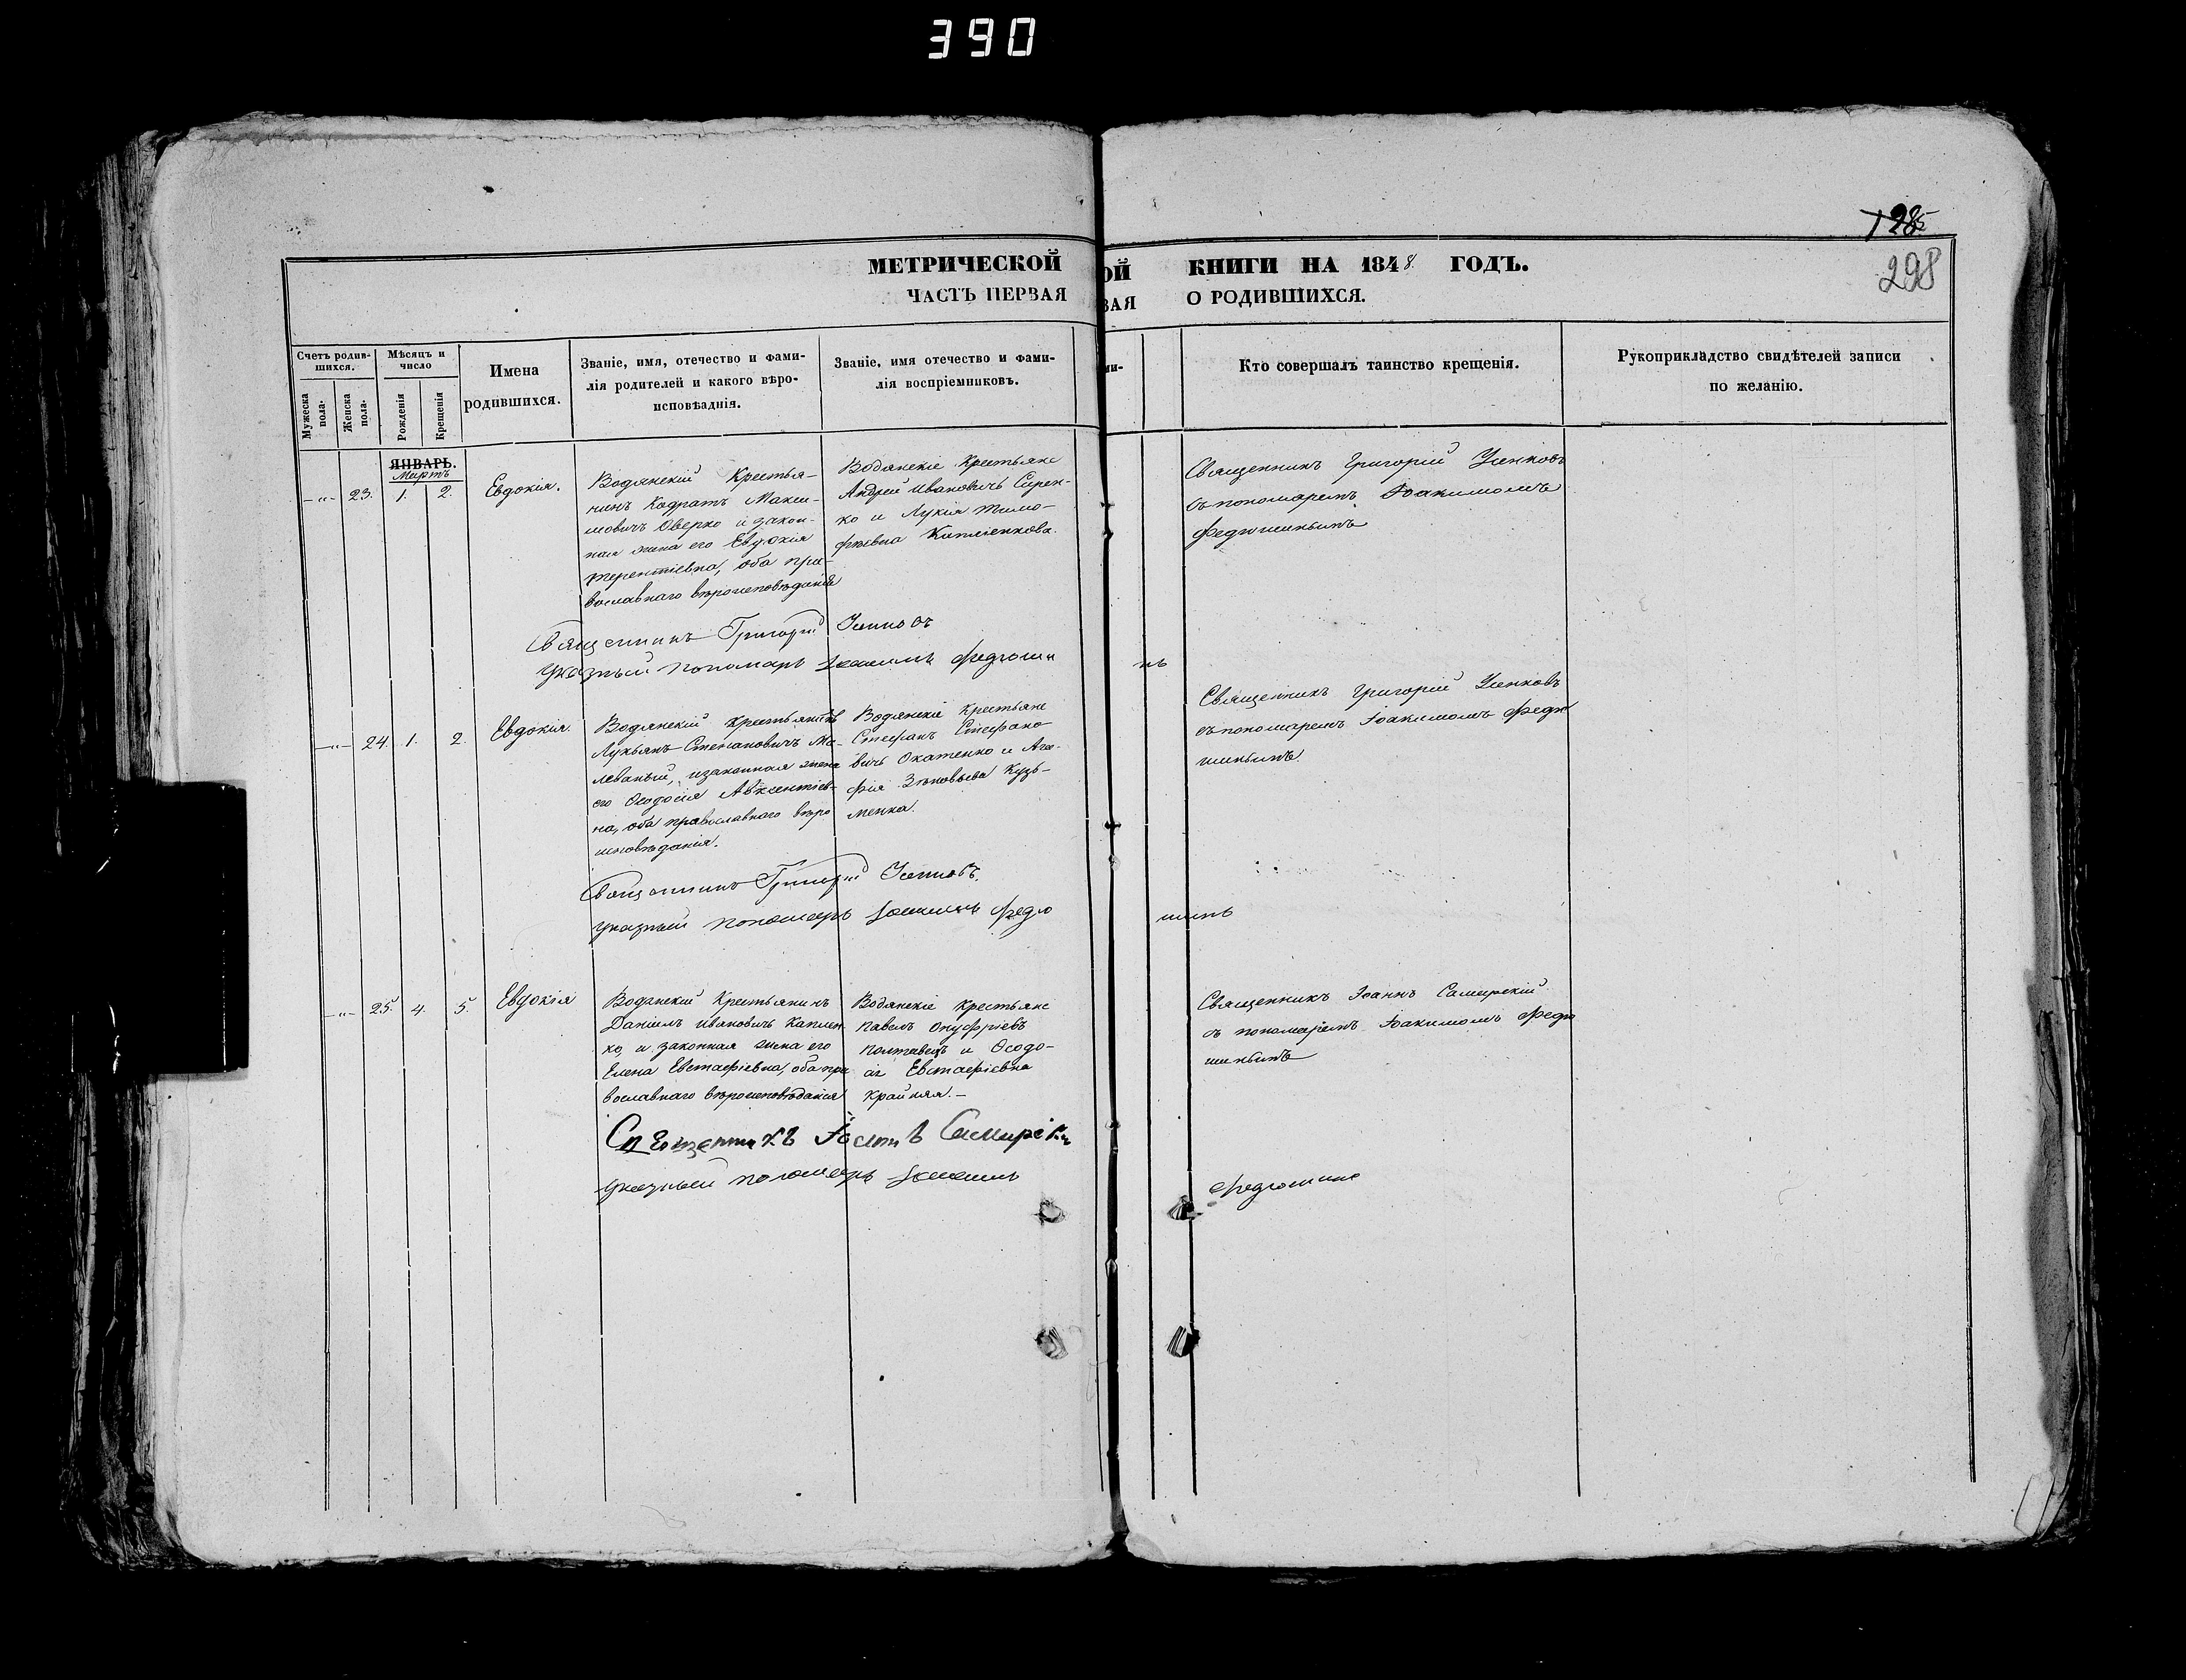 390
128
298
МЕТРИЧЕСКОЙ
ОЙ КНИГИ НА 1848 ГОДЪ.
ЧАСТЬ ПЕРВАЯ
ВАЯ О РОДИВШИХСЯ.
Счетъ родив-
шихся.
Мужеска
пола.
Женска
пола.
Мѣсяцъ и
число
Рожденія
Крещенія
Имена
родившихся.
Званіе, имя, отечество и фами-
лія родителей и какого вѣро-
исповѣаднія.
Званіе, имя отечество и фами-
лія воспріемниковъ.
ми-
Кто совершалъ таинство крещенія.
Рукоприкладство свидѣтелей записи
по желанію.
ЯНВАРЬ.
Мартъ
-"- 23. 1. 2.
Евдокія.
Водянскій Крестья-
нинъ Кодратъ Макси-
мовичъ Оверко и закон-
ная жена его Евдокія
Терентіевна, оба пра-
вославнаго вѣроисповѣданія
Водянскіе Крестьяне
Андрей Ивановичъ Сирен-
ко и Лукія Тимо-
фѣевна Каплѣенкова.
Священникъ Григорій
съ пономаремъ Іоакимомъ
Федюшинымъ
Священникъ Григорій
Указный пономарь Іоакимъ Федюши
нъ
-"- 24. 1. 2.
Евдокія.
Водянскій крестьянинъ
Лукьянъ Степановичъ Ма-
леваный, и законная жена
его Феодосія Авксентіев-
на, оба православнаго вѣро
исповѣданія.
Водянскіе Крестьяне
Стефанъ Стефано-
вичъ Окатенко и Ага-
фія Зѣновьева Кузь-
менка.
Священникъ Григорій
съ пономаремъ Іоакимомъ Федю
шинымъ.
Священникъ Григорій
Указный пономарь Іоакимъ Федю
шинъ
-"- 25. 4. 5.
Евдокія
Водянскій Крестьянинъ
Даніилъ Ивановичъ Каплен
ко, и законная жена его
Елена Евстафіевна, оба пра
вославнаго вѣроисповѣданія
Водянскіе крестьяне
Павелъ Онуфріевъ
Полтавецъ и Феодо-
сія Евстафіевна
Крайняя.-
Священникъ Іоаннъ Самирскій
съ пономаремъ Іоакимомъ Федю
шинымъ
Священникъ Іоаннъ Самирскій
Указный пономарь Іоакимъ
Федюшинъ